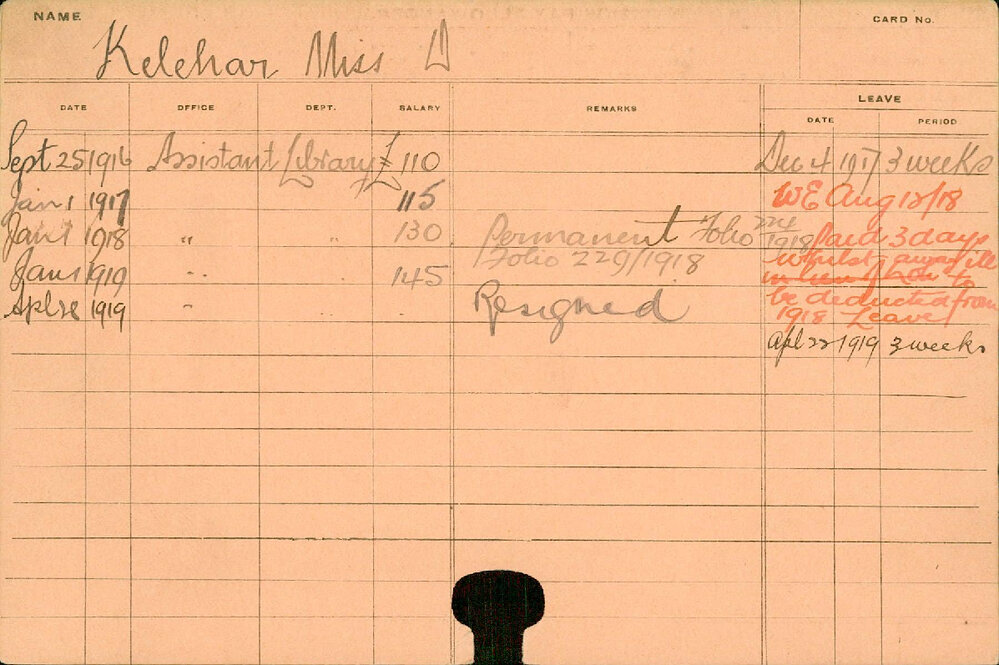 NAME
CARD No.
Kelehar Miss D
DATE OFFICE DEPT. SALARY REMARKS LEAVE
DATE PERIOD
Sept 25 1916 Assistant Library £110 Dec 4 1917 3 weeks
Jan 1 1917 115 WE Aug 12/18
Jan 1 1918 " " 130 Permanent Folio 224/1918 Paid 3 days
Folio 229/1918 whilst away ill
Jan 1 1919 " 145 in lieu to
Apl 28 1919 " Resigned be deducted from
1918 Leave
Apl 22 1919 3 weeks